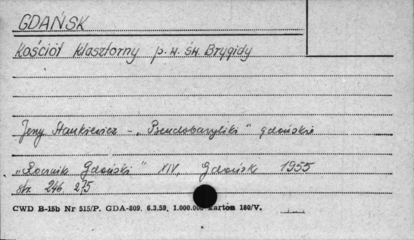 GDAŃSK
Kościół klasztorny p.w. św. Brygidy
Jerzy Stankiewicz - „Pseudobazyliki" gdańskie
„Rocznik Gdański" XIV, Gdańsk 1955
str. 246 275
CWD B-15b Nr 515/P. GDA-809. 6.3.59, 1.000.000 kartón 180/V.